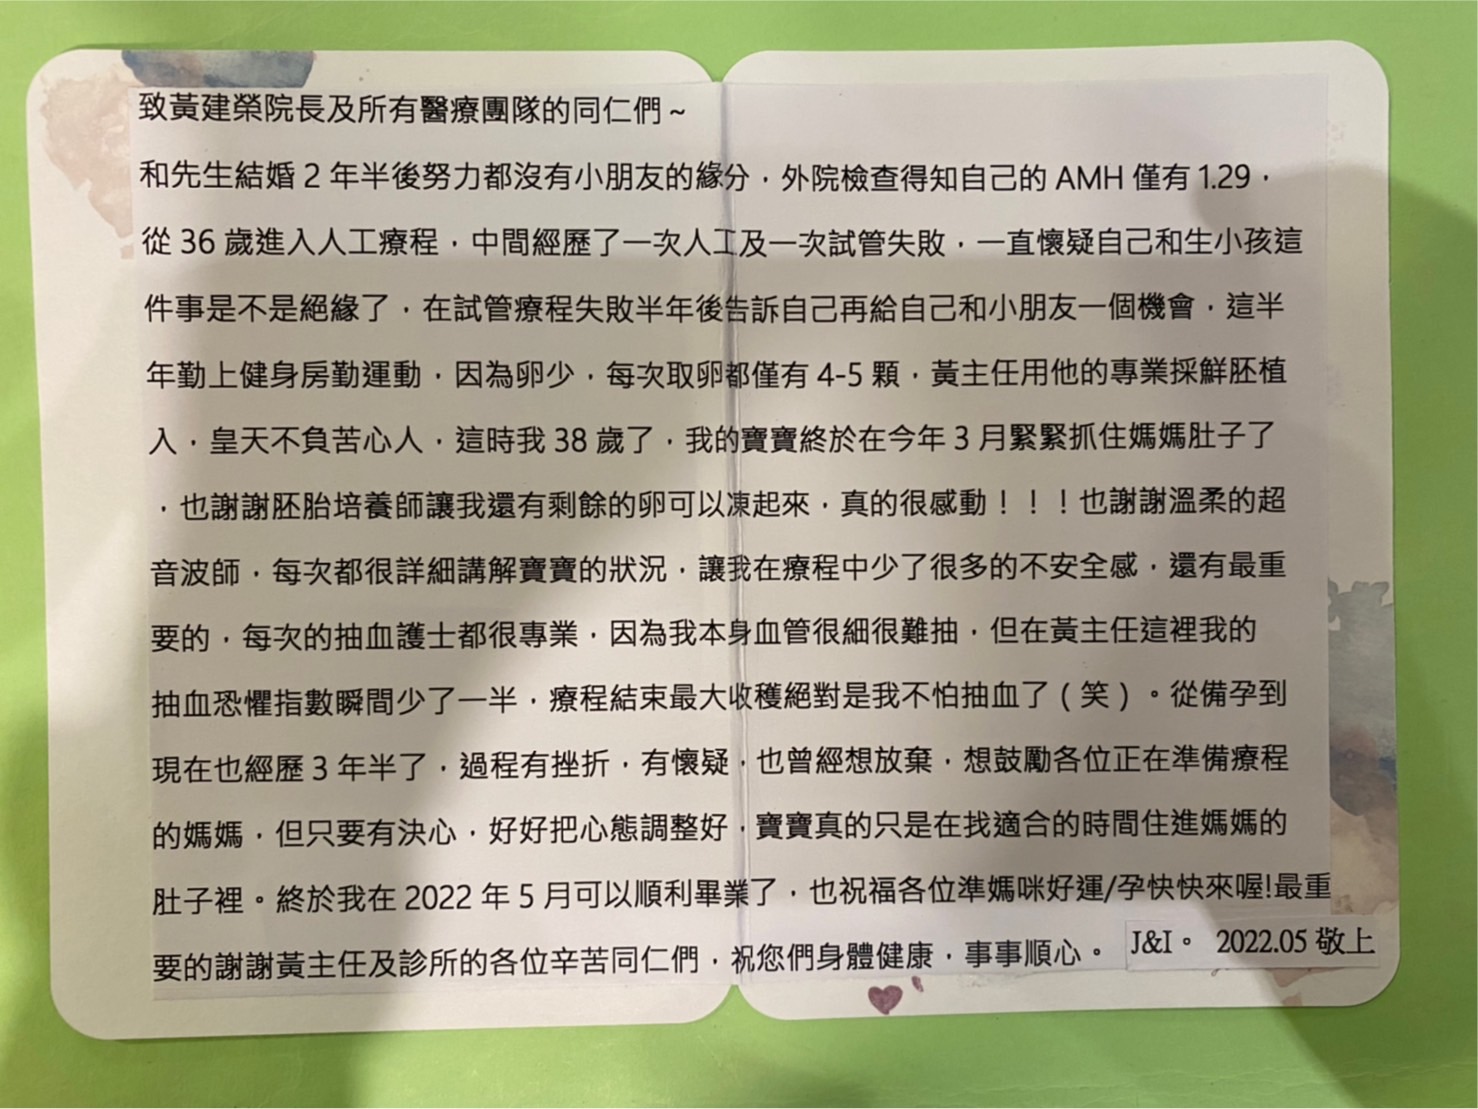 致黃建榮院長及所有醫療團隊的同仁們~
和先生結婚 2 年半後努力都沒有小朋友的緣分，外院檢查得知自己的 AMH 僅有 1.29，
從 36 歲進入人工療程，中間經歷了一次人工及一次試管失敗，一直懷疑自己和生小孩這
件事是不是絕緣了，在試管療程失敗半年後告訴自己再給自己和小朋友一個機會，這半
年勤上健身房勤運動，因為卵少，每次取卵都僅有 4-5 顆，黃主任用他的專業採鮮胚植
入，皇天不負苦心人，這時我 38 歲了，我的寶寶終於在今年 3 月緊緊抓住媽媽肚子了
，也謝謝胚胎培養師讓我還有剩餘的卵可以凍起來，真的很感動！！！也謝謝溫柔的超
音波師，每次都很詳細講解寶寶的狀況，讓我在療程中少了很多的不安全感，還有最重
要的，每次的抽血護士都很專業，因為我本身血管很細很難抽，但在黃主任這裡我的
抽血恐懼指數瞬間少了一半，療程結束最大收穫絕對是我不怕抽血了（笑）。從備孕到
現在也經歷 3 年半了，過程有挫折，有懷疑，也曾經想放棄，想鼓勵各位正在準備療程
的媽媽，但只要有決心，好好把心態調整好，寶寶真的只是在找適合的時間住進媽媽的
肚子裡。終於我在 2022 年 5 月可以順利畢業了，也祝福各位準媽咪好運/孕快快來喔!最重
要的謝謝黃主任及診所的各位辛苦同仁們，祝您們身體健康，事事順心。 J&I。 2022.05 敬上